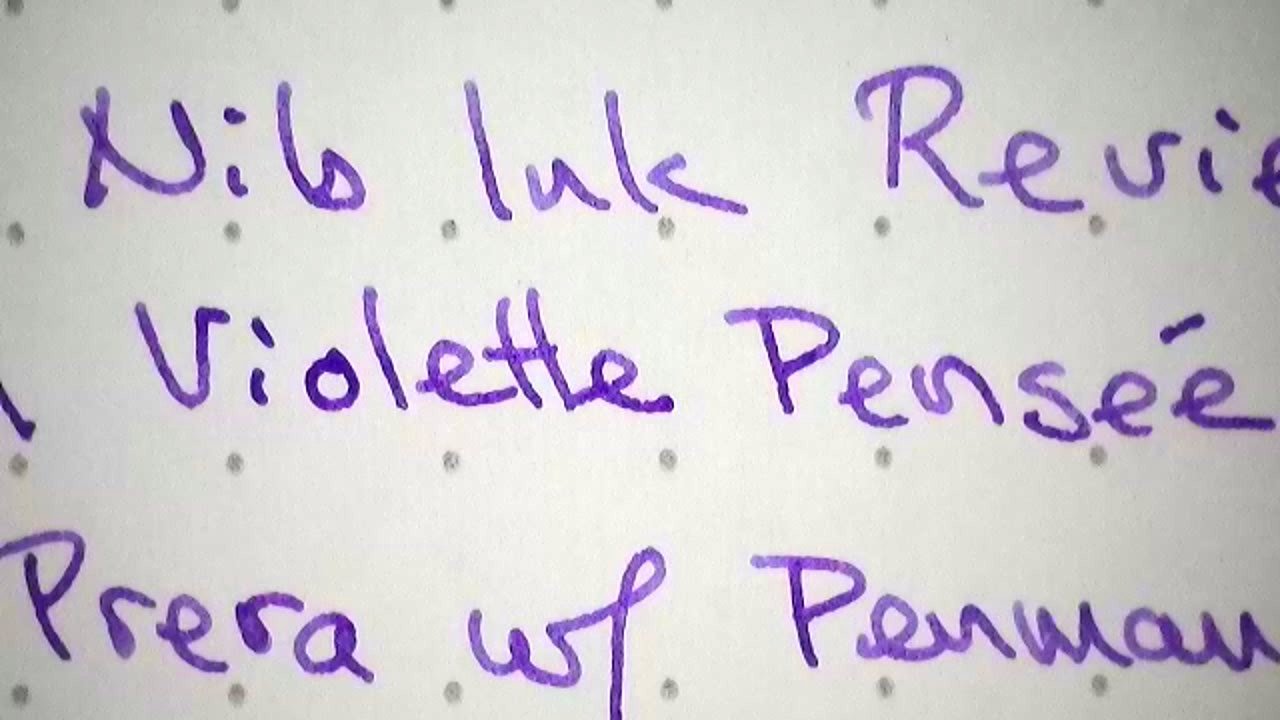 Nib Ink Revie
Violette Pensée
Prera w/ Penman